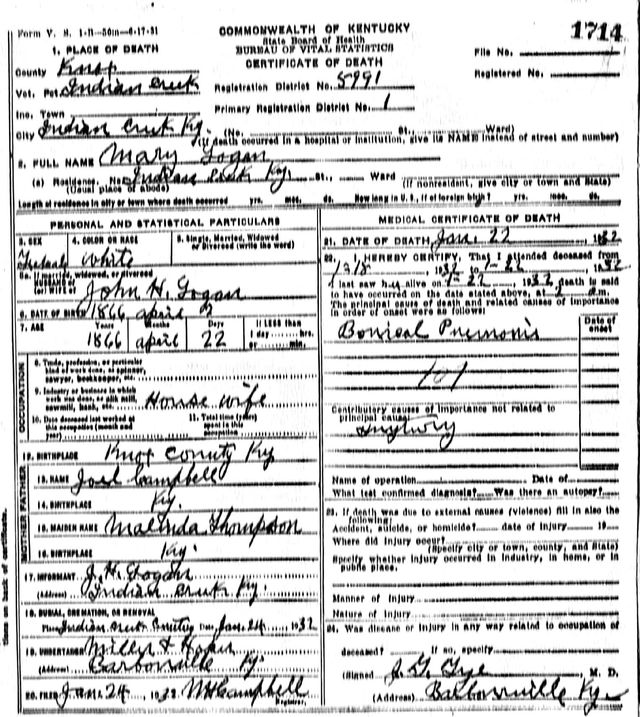 Form V. S. 1-
COMMONWEALTH OF KENTUCKY
1714
State Board of Health
1. PLACE OF DEATH
BUREAU OF VITAL STATISTICS
File No.
CERTIFICATE OF DEATH
County Knox
Registered No.
Vot. Pct Indian Creek
Registration District No. 5991
Inc. Town
Primary Registration District No. 1
City Indian Creek Ky. (No. St., Ward)
(If death occurred in a hospital or institution, give its NAME instead of street and number)
2. FULL NAME Mary Logan
(a) Residence. No. Indian Creek Ky. St., Ward
(Usual place of abode) (If nonresident, give city or town and State)
Length of residence in city or town where death occurred yrs. mos. ds. How long in U. S., if of foreign birth? yrs. mos. ds.
PERSONAL AND STATISTICAL PARTICULARS
3. SEX
4. COLOR OR RACE
5. Single, Married, Widowed or Divorced (write the word)
Female
White
5a. If married, widowed, or divorced
HUSBAND of
(or) WIFE of John H. Logan
6. DATE OF BIRTH 1866 april
7. AGE Years Months Days If LESS than
1866 april 22 1 day hrs.
or min.
OCCUPATION
8. Trade, profession, or particular
kind of work done, as spinner,
sawyer, bookkeeper, etc.
9. Industry or business in which
work was done, as silk mill,
sawmill, bank, etc. House wife
10. Date deceased last worked at
this occupation (month and
year)
11. Total time (years)
spent in this
occupation
12. BIRTHPLACE Knox Conuty Ky
FATHER
13. NAME Joel Campbell
14. BIRTHPLACE Ky.
MOTHER
15. MAIDEN NAME Malinda Thompson
16. BIRTHPLACE Ky.
17. INFORMANT J. H. Logan
(Address) Indian Creek Ky.
18. BURIAL, CREMATION, OR REMOVAL
Place Indian Creek Date Jan. 24 1932
19. UNDERTAKER Miller &
(Address) Barbourville Ky.
20. FILED Jan. 24 1932 Campbell
Registrar.
MEDICAL CERTIFICATE OF DEATH
21. DATE OF DEATH Jan. 22 1932
22. I HEREBY CERTIFY, That I attended deceased from
1932 to 1-22, 1932
I last saw h alive on 1-22, 1932, death is said
to have occurred on the date stated above, at m.
The principal cause of death and related causes of importance
in order of onset were as follows:
Date of
onset
107
Contributory causes of importance not related to
principal cause:
Name of operation Date of
What test confirmed diagnosis? Was there an autopsy?
23. If death was due to external causes (violence) fill in also the
following:
Accident, suicide, or homicide? date of injury 19
Where did injury occur?
(Specify city or town, county, and State)
Specify whether injury occurred in industry, in home, or in
public place.
Manner of injury
Nature of injury
24. Was disease or injury in any way related to occupation of
deceased? If no, specify
(Signed) J. G. Tye M. D.
(Address) Barbourville Ky.